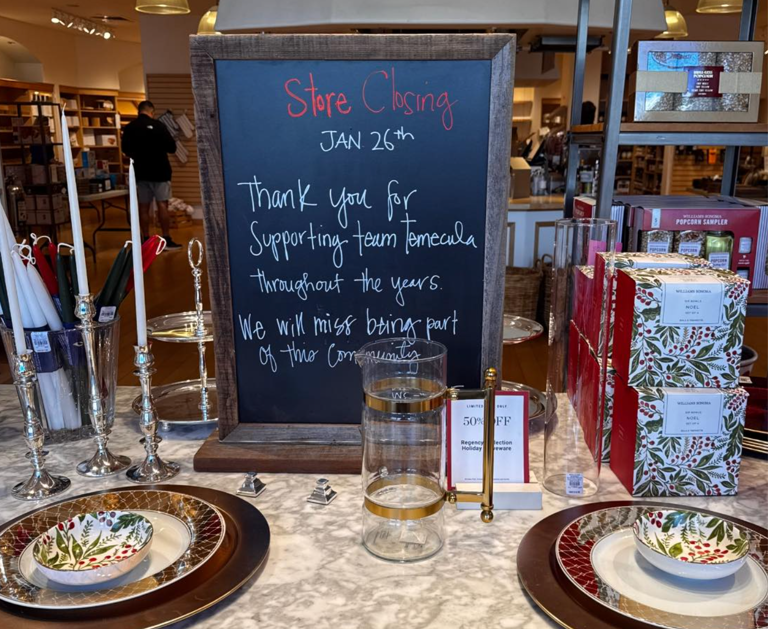 Store Closing
JAN 26th
Thank you for
Supporting team Temecula
throughout the years.
We will miss being part
of this Community
WILLIAMS SONOMA
POPCORN SAMPLER
WILLIAMS SONOMA
NOËL
WILLIAMS SONOMA
NOËL
LIMITED
ONLY
50%
OFF
Regency
Holiday